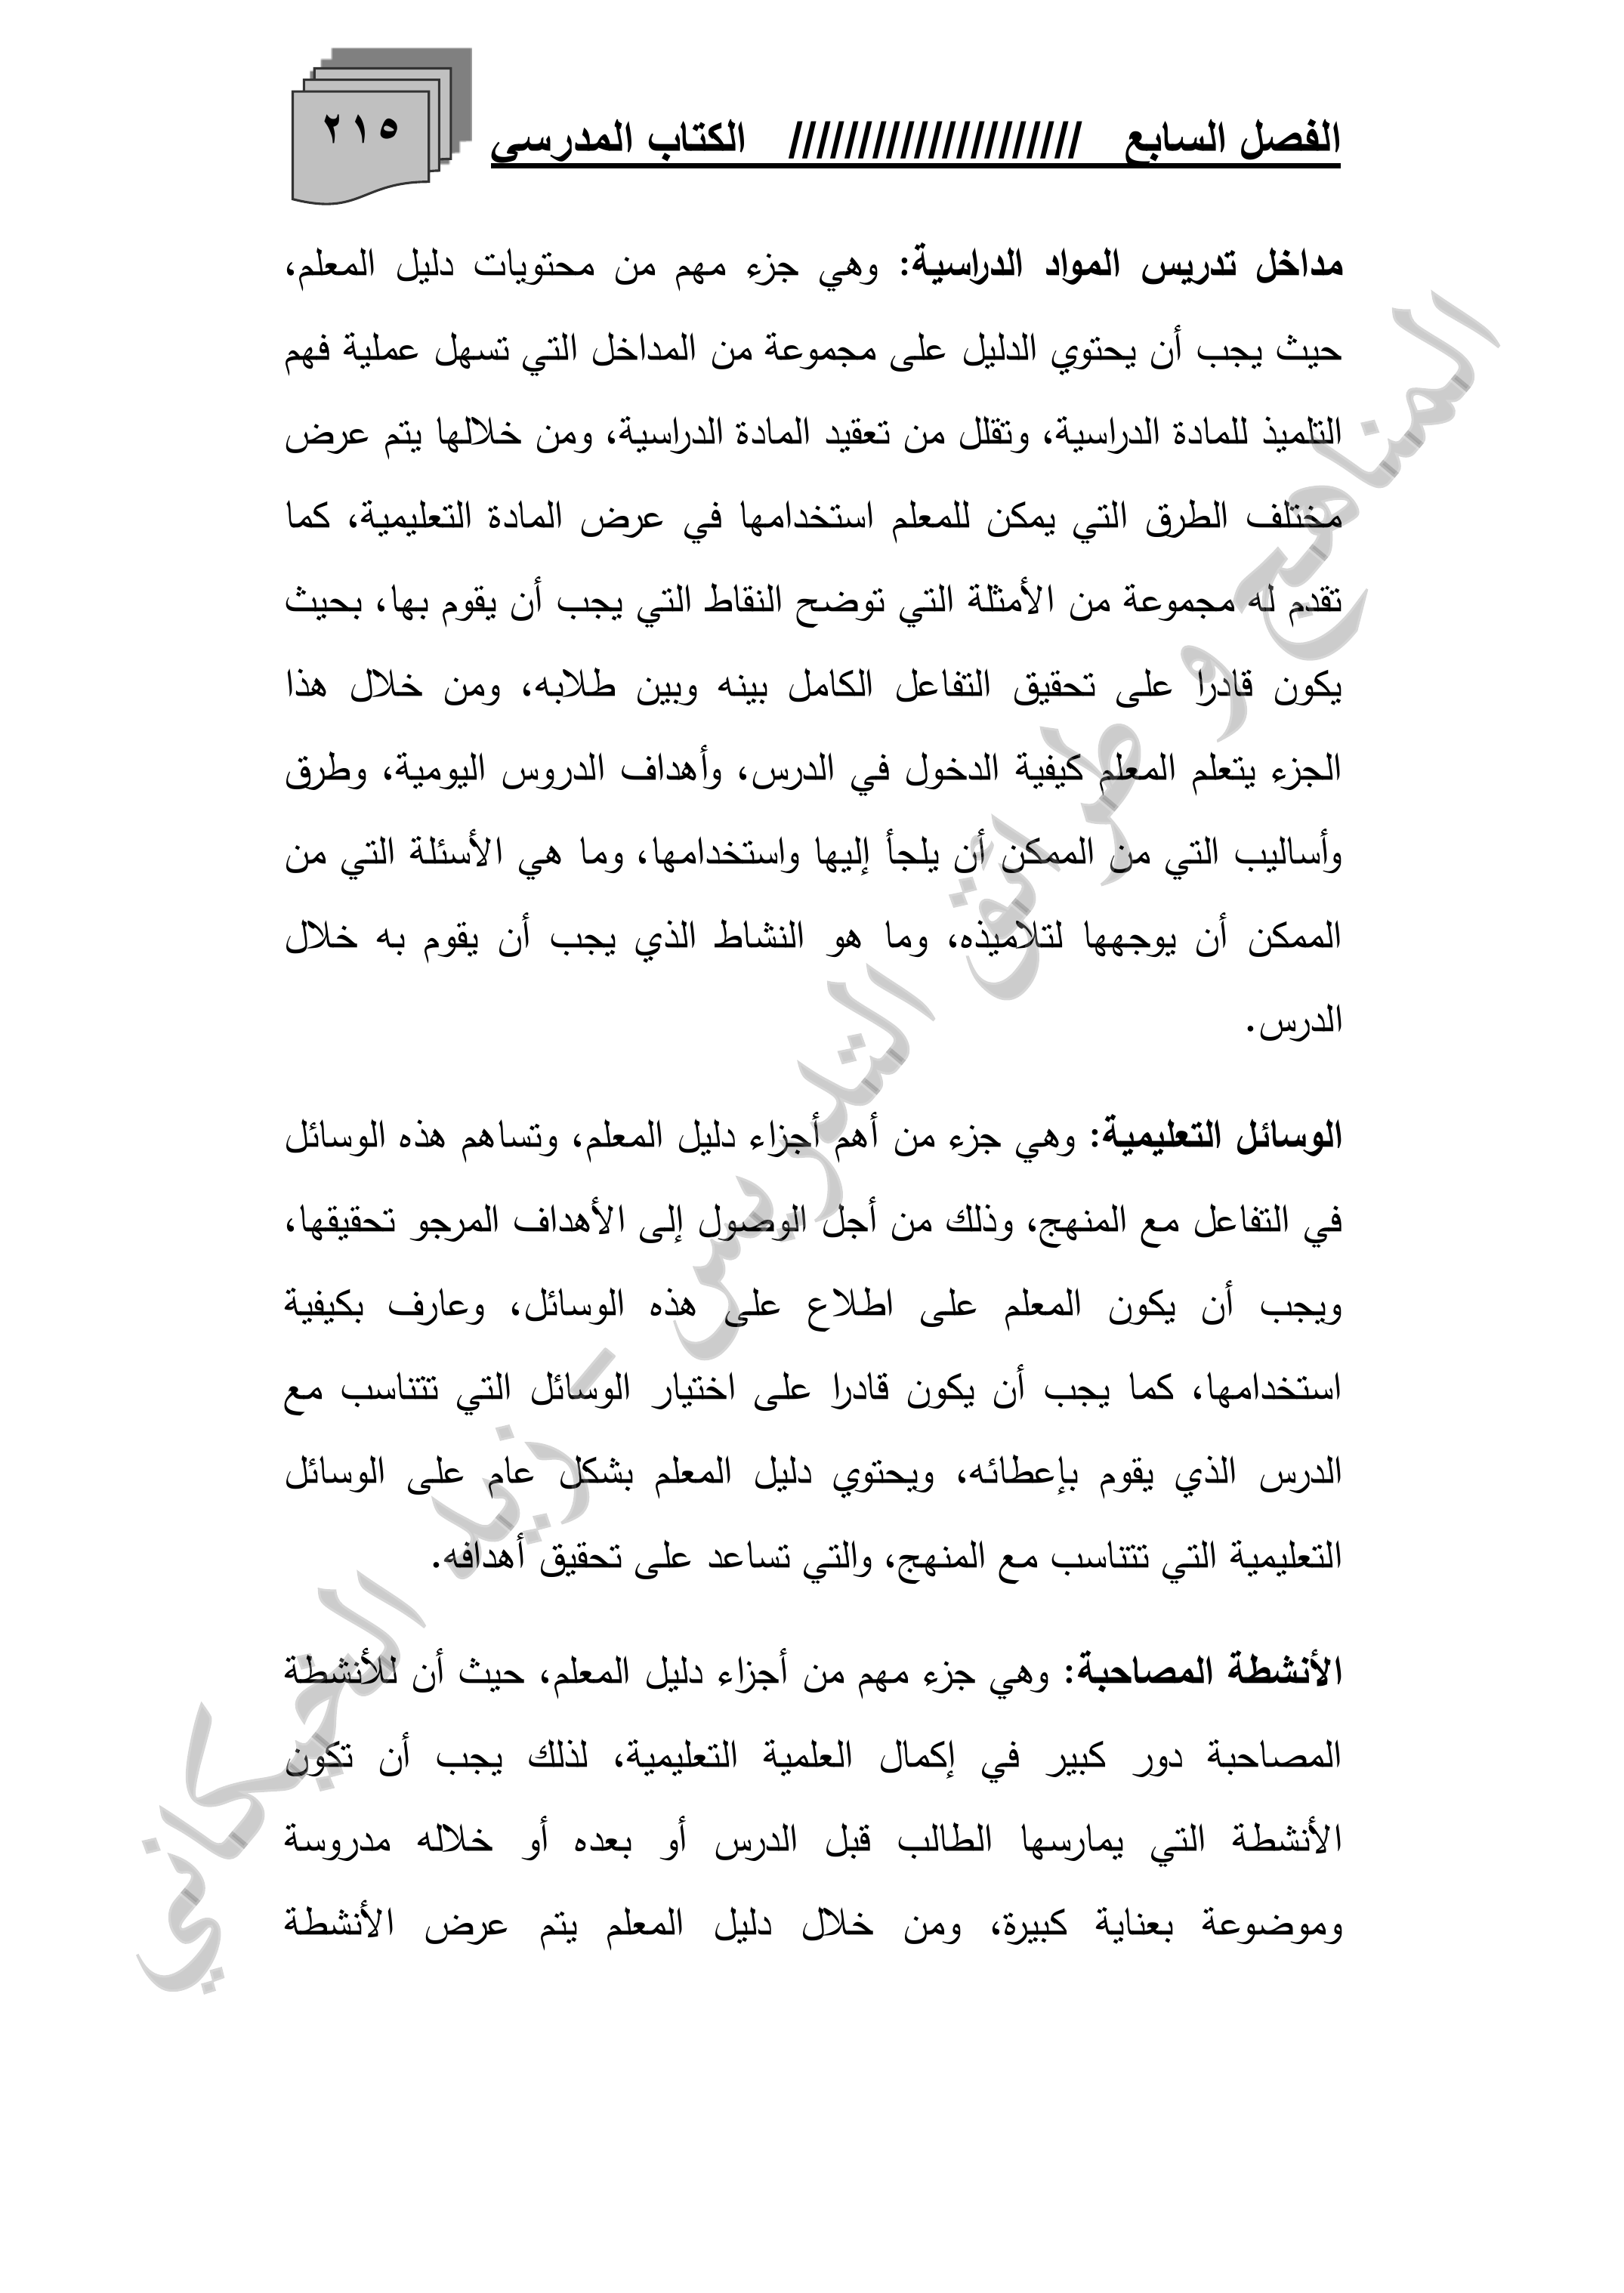 الفصل السابع ///////////////////// الكتاب المدرسي
٢١٥
مداخل تدريس المواد الدراسية: وهي جزء مهم من محتويات دليل المعلم،
حيث يجب أن يحتوي الدليل على مجموعة من المداخل التي تسهل عملية فهم
التلميذ للمادة الدراسية، وتقلل من تعقيد المادة الدراسية، ومن خلالها يتم عرض
مختلف الطرق التي يمكن للمعلم استخدامها في عرض المادة التعليمية، كما
تقدم له مجموعة من الأمثلة التي توضح النقاط التي يجب أن يقوم بها، بحيث
يكون قادرا على تحقيق التفاعل الكامل بينه وبين طلابه، ومن خلال هذا
الجزء يتعلم المعلم كيفية الدخول في الدرس، وأهداف الدروس اليومية، وطرق
وأساليب التي من الممكن أن يلجأ إليها واستخدامها، وما هي الأسئلة التي من
الممكن أن يوجهها لتلاميذه، وما هو النشاط الذي يجب أن يقوم به خلال
الدرس.
الوسائل التعليمية: وهي جزء من أهم أجزاء دليل المعلم، وتساهم هذه الوسائل
في التفاعل مع المنهج، وذلك من أجل الوصول إلى الأهداف المرجو تحقيقها،
ويجب أن يكون المعلم على اطلاع على هذه الوسائل، وعارف بكيفية
استخدامها، كما يجب أن يكون قادرا على اختيار الوسائل التي تتناسب مع
الدرس الذي يقوم بإعطائه، ويحتوي دليل المعلم بشكل عام على الوسائل
التعليمية التي تتناسب مع المنهج، والتي تساعد على تحقيق أهدافه.
الأنشطة المصاحبة: وهي جزء مهم من أجزاء دليل المعلم، حيث أن للأنشطة
المصاحبة دور كبير في إكمال العلمية التعليمية، لذلك يجب أن تكون
الأنشطة التي يمارسها الطالب قبل الدرس أو بعده أو خلاله مدروسة
وموضوعة بعناية كبيرة، ومن خلال دليل المعلم يتم عرض الأنشطة
المناهج و طرائق التدريس - زيد الخيكاني